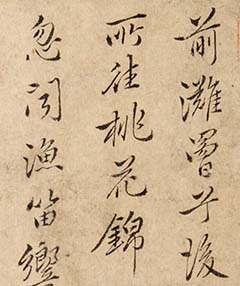 前灘
所往桃花錦
忽聞漁笛響